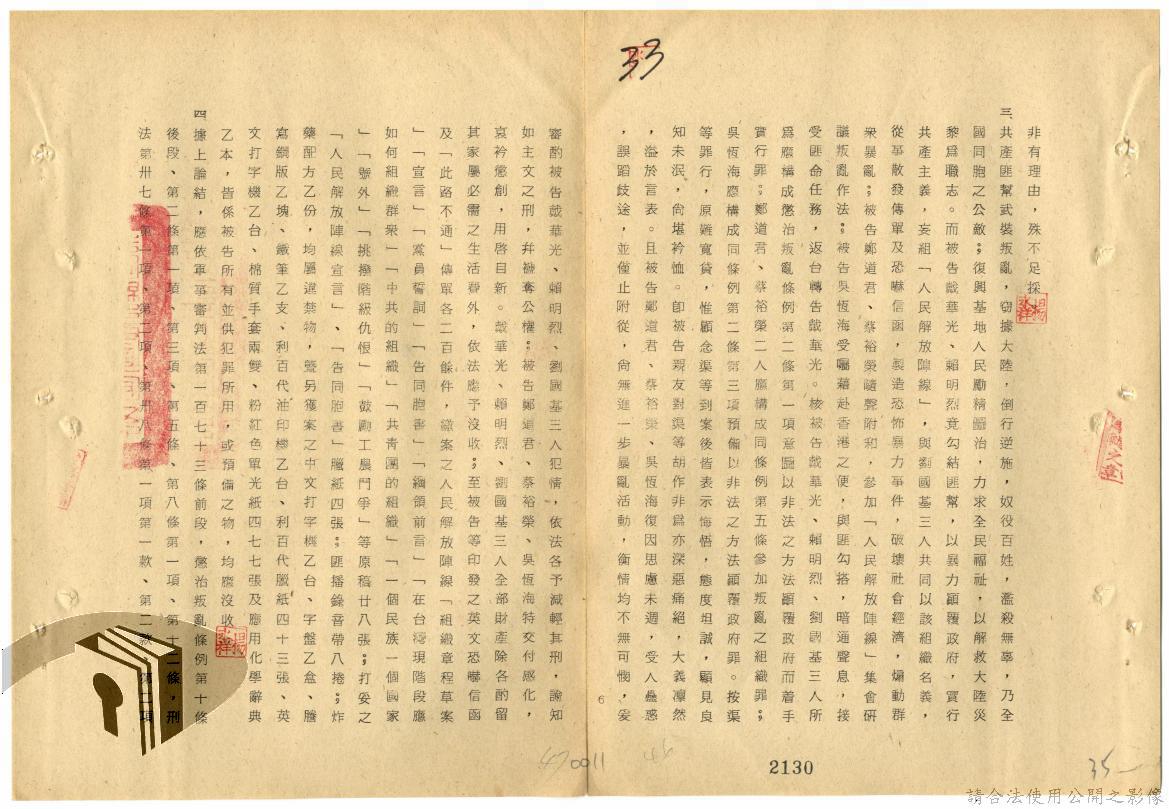 33
非有理由，殊不足採。
三、共產匪幫武裝叛亂，竊據大陸，倒行逆施，奴役百姓，濫殺無辜，乃全
國同胞之公敵；復興基地人民勵精圖治，力求全民福祉，以解救大陸災
黎爲職志。而被告戴華光、賴明烈竟勾結匪幫，以暴力顚覆政府，實行
共產主義，妄組「人民解放陣線」，與劉國基三人共同以該組織名義，
從事散發傳單及恐嚇信函，製造恐怖暴力事件，破壞社會經濟，煽動群
衆暴亂；被告鄭道君、蔡裕榮隨聲附和，參加「人民解放陣線」集會研
議叛亂作法；被告吳恆海受囑藉赴香港之便，與匪勾搭，暗通聲息，接
受匪命任務，返台轉告戴華光。核被告戴華光、賴明烈、劉國基三人所
爲應構成懲治叛亂條例第二條第一項意圖以非法之方法顚覆政府而着手
實行罪；鄭道君、蔡裕榮二人應構成同條例第五條參加叛亂之組織罪；
吳恆海應構成同條例第二條第三項預備以非法之方法顚覆政府罪。按渠
等罪行，原難寬貸，惟顧念渠等到案後皆表示悔悟，態度坦誠，顯見良
知未泯，尙堪衿恤。卽被告親友對渠等胡作非爲亦深惡痛絕，大義凜然
，溢於言表。且被告鄭道君、蔡裕榮、吳恆海復因思慮未週，受人蠱惑
，誤蹈歧途，並僅止附從，尙無進一步暴亂活動，衡情均不無可憫，爰
6
審酌被告戴華光、賴明烈、劉國基三人犯情，依法各予減輕其刑，諭知
如主文之刑，并褫奪公權。被告鄭道君、蔡裕榮、吳恆海特交付感化，
哀衿懲創，用啓自新。戴華光、賴明烈、劉國基三人全部財產除各酌留
其家屬必需之生活費外，依法應予沒收；至被告等印發之英文恐嚇信函
及「此路不通」傳單各二百餘件，繳案之人民解放陣線「組織章程草案
」「宣言」「黨員誓詞」「告同胞書」「綱領前言」「在台灣現階段應
如何組織群衆」「中共的組織」「共青團的組織」「一個民族一個國家
」「號外」「挑撥階級仇恨」「鼓勵工農鬥爭」等原稿廿八張；打妥之
「人民解放陣線宣言」、「告同胞書」臘紙四張；匪播錄音帶八捲；炸
藥配方乙份，均屬違禁物，曁另獲案之中文打字機乙台、字盤乙盒、謄
寫鋼版乙塊、鐵筆乙支、利百代油印機乙台、利百代臘紙四十三張、英
文打字機乙台、棉質手套兩雙、粉紅色單光紙四七七張及應用化學辭典
乙本，皆係被告所有並供犯罪所用，或預備之物，均應沒收。
四、據上論結，應依軍事審判法第一百七十三條前段，懲治叛亂條例第十條
後段、第二條第一項、第三項、第五條、第八條第一項、第十二條，刑
法第卅七條第一項、第二項、第卅八條第一項第一款、第二款、第二項
2130
35
請合法使用公開之影像